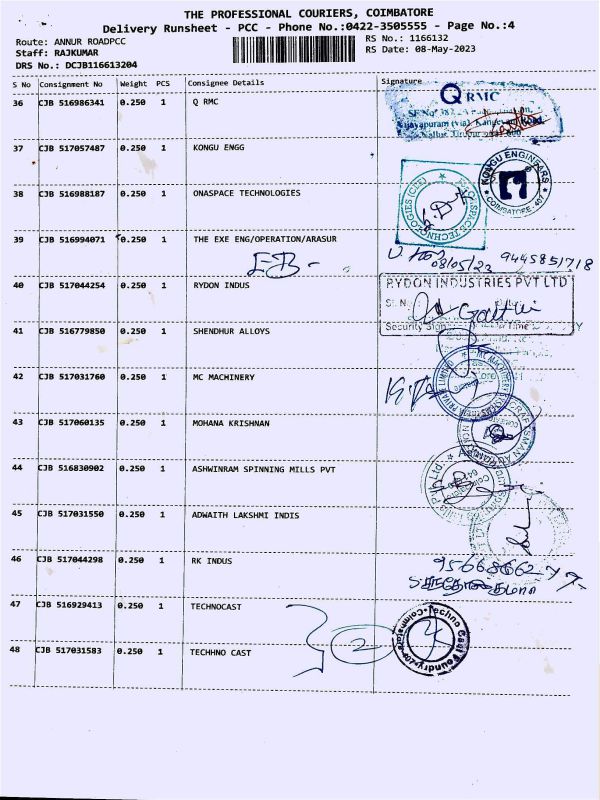 THE PROFESSIONAL COURIERS, COIMBATORE
Delivery Runsheet - PCC - Phone No.:0422-3505555 - Page No.:4
Route: ANNUR ROADPCC
RS No.: 1166132
Staff: RAJKUMAR
RS Date: 08-May-2023
DRS No.: DCJB116613204
S No Consignment No Weight PCS Consignee Details Signature
36 CJB 516986341 0.250 1 Q RMC
Q RMC
37 CJB 517057487 0.250 1 KONGU ENGG
KONGU ENGINEERS
COIMBATORE
38 CJB 516988187 0.250 1 ONASPACE TECHNOLOGIES
39 CJB 516994071 0.250 1 THE EXE ENG/OPERATION/ARASUR
EB -
08/05/23 9445851718
40 CJB 517044254 0.250 1 RYDON INDUS
RYDON INDUSTRIES PVT LTD
Security Sign Time
41 CJB 516779850 0.250 1 SHENDHUR ALLOYS
42 CJB 517031760 0.250 1 MC MACHINERY
43 CJB 517060135 0.250 1 MOHANA KRISHNAN
44 CJB 516830902 0.250 1 ASHWINRAM SPINNING MILLS PVT
45 CJB 517031550 0.250 1 ADWAITH LAKSHMI INDIS
46 CJB 517044298 0.250 1 RK INDUS
47 CJB 516929413 0.250 1 TECHNOCAST
2
Techno Cast Foundry
48 CJB 517031583 0.250 1 TECHHNO CAST